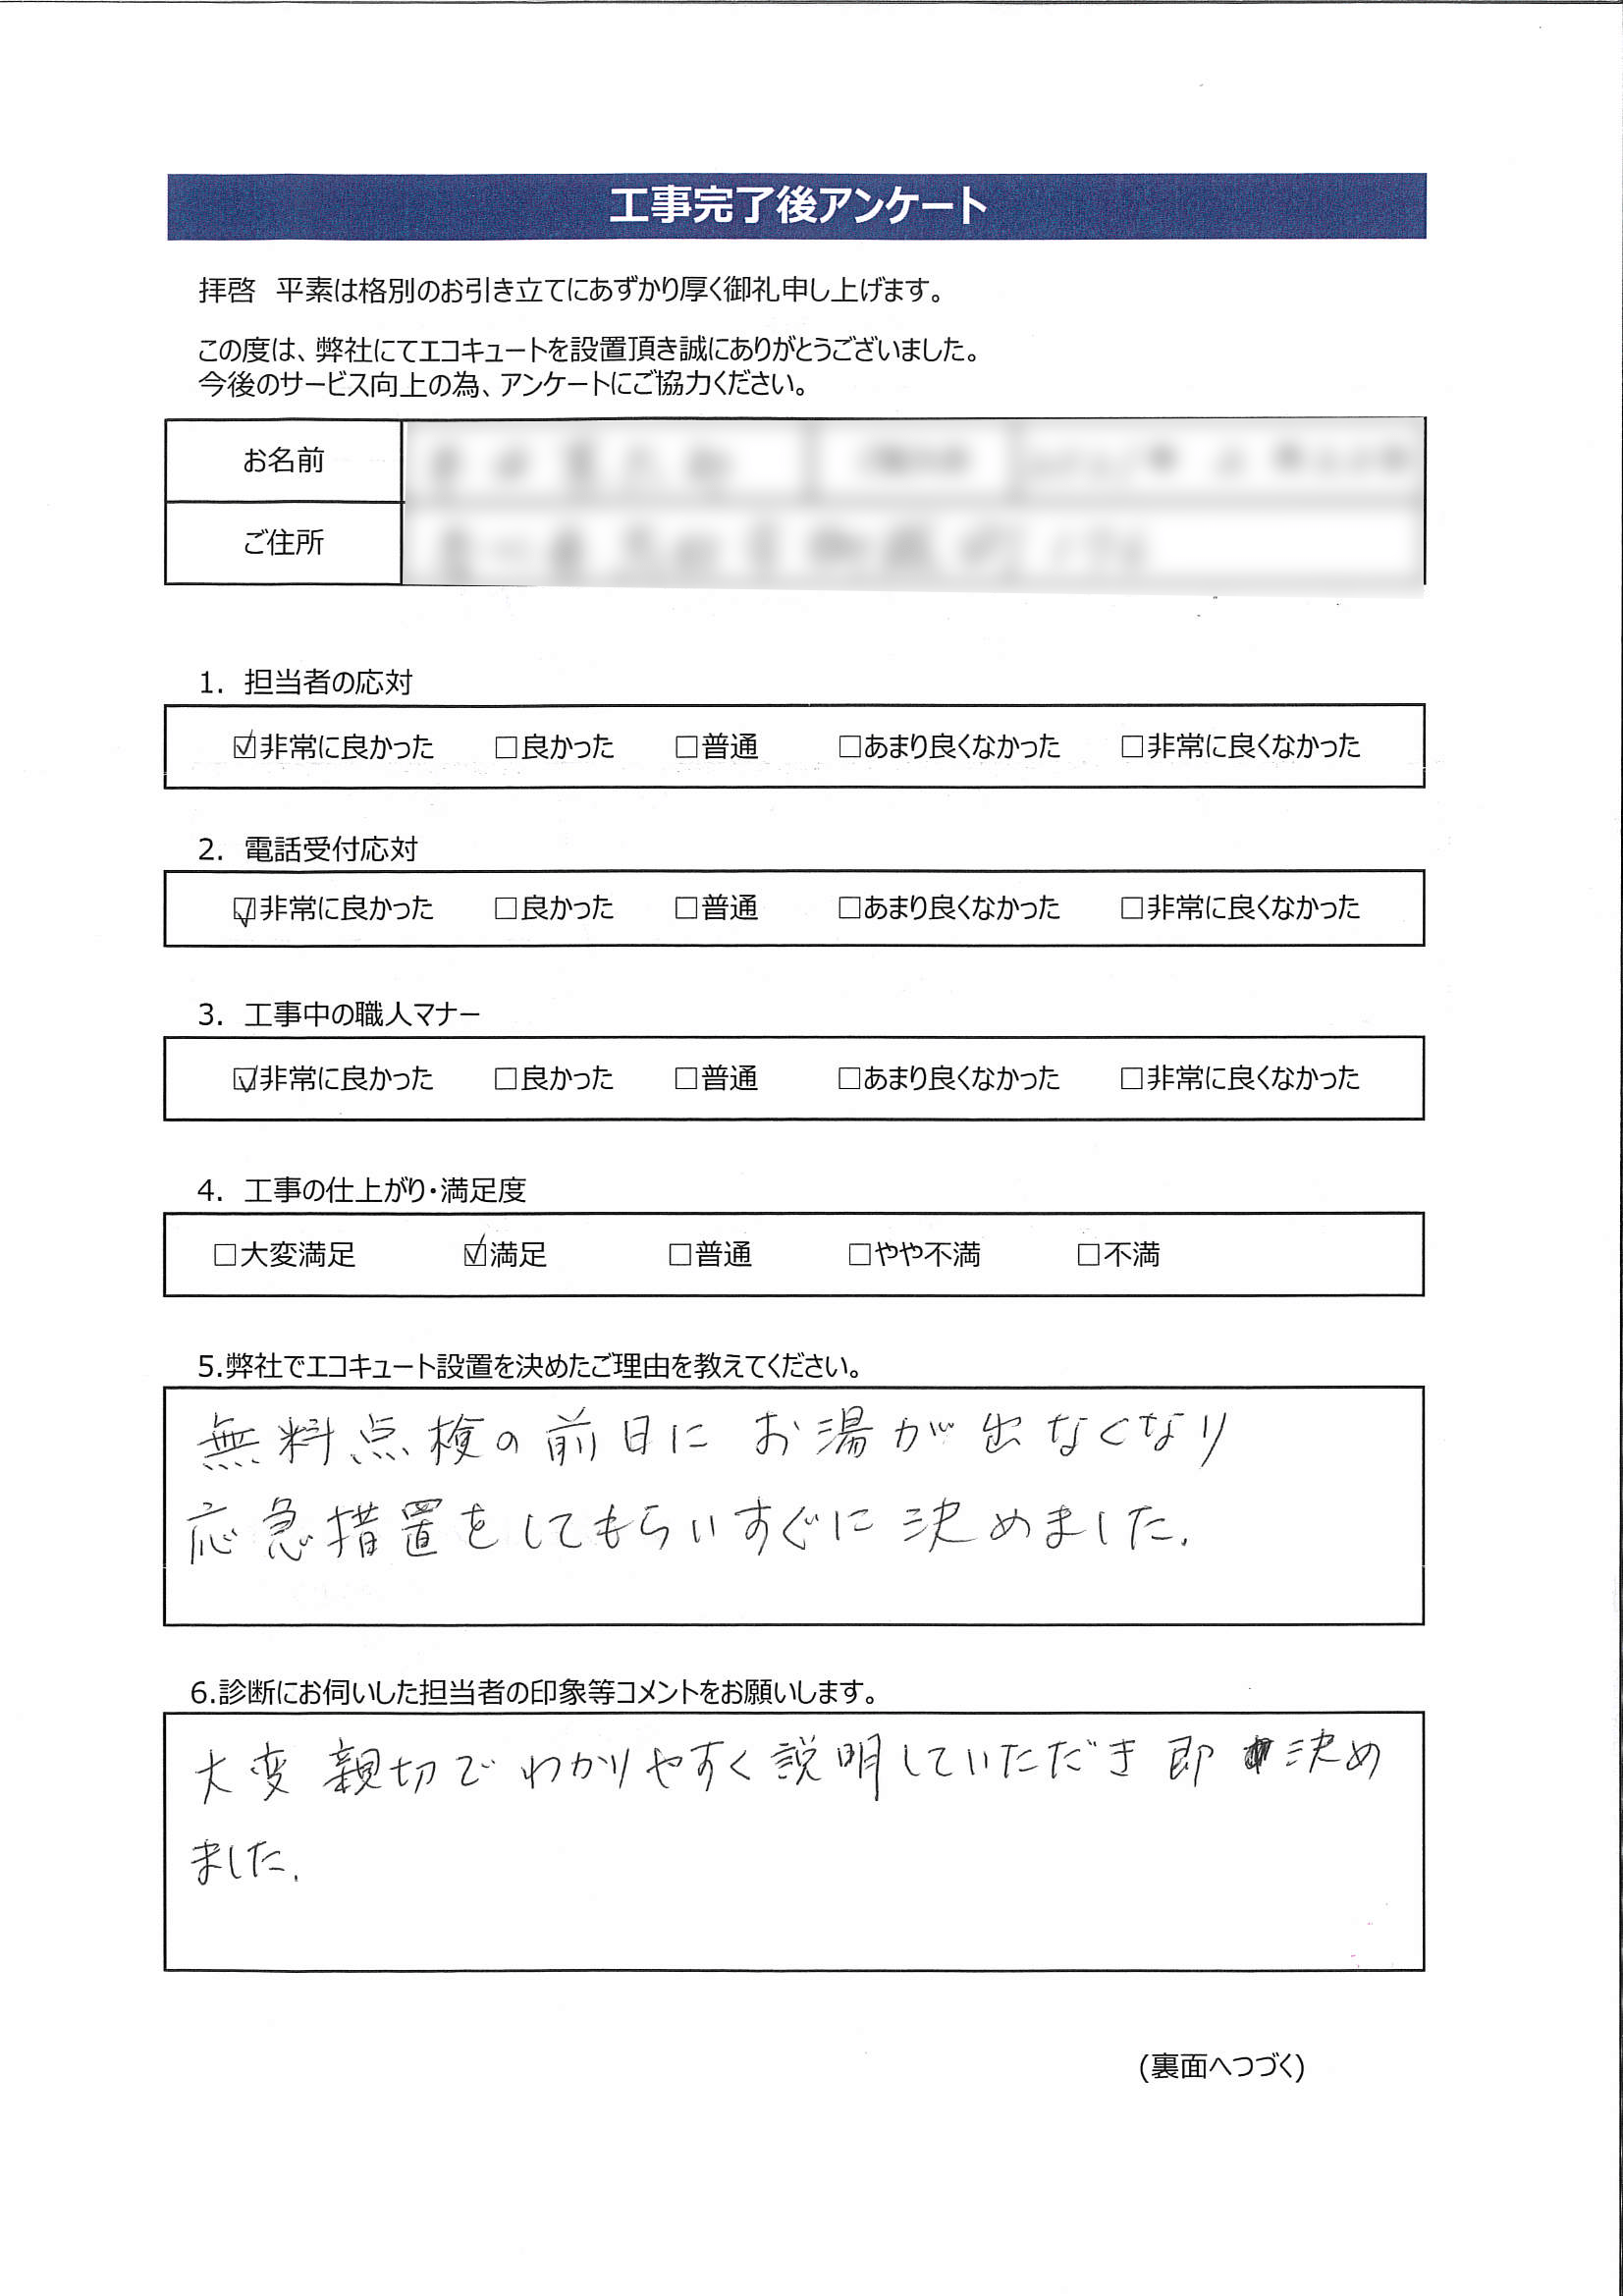 工事完了後アンケート
拝啓　平素は格別のお引き立てにあずかり厚く御礼申し上げます。
この度は、弊社にてエコキュートを設置頂き誠にありがとうございました。
今後のサービス向上の為、アンケートにご協力ください。
お名前
ご住所
1. 担当者の応対
☑非常に良かった　□良かった　□普通　□あまり良くなかった　□非常に良くなかった
2. 電話受付応対
☑非常に良かった　□良かった　□普通　□あまり良くなかった　□非常に良くなかった
3. 工事中の職人マナー
☑非常に良かった　□良かった　□普通　□あまり良くなかった　□非常に良くなかった
4. 工事の仕上がり・満足度
□大変満足　☑満足　□普通　□やや不満　□不満
5.弊社でエコキュート設置を決めたご理由を教えてください。
無料点検の前日に お湯が出なくなり
応急措置をしてもらいすぐに決めました.
6.診断にお伺いした担当者の印象等コメントをお願いします。
大変親切でわかりやすく説明していただき即決め
ました.
(裏面へつづく)